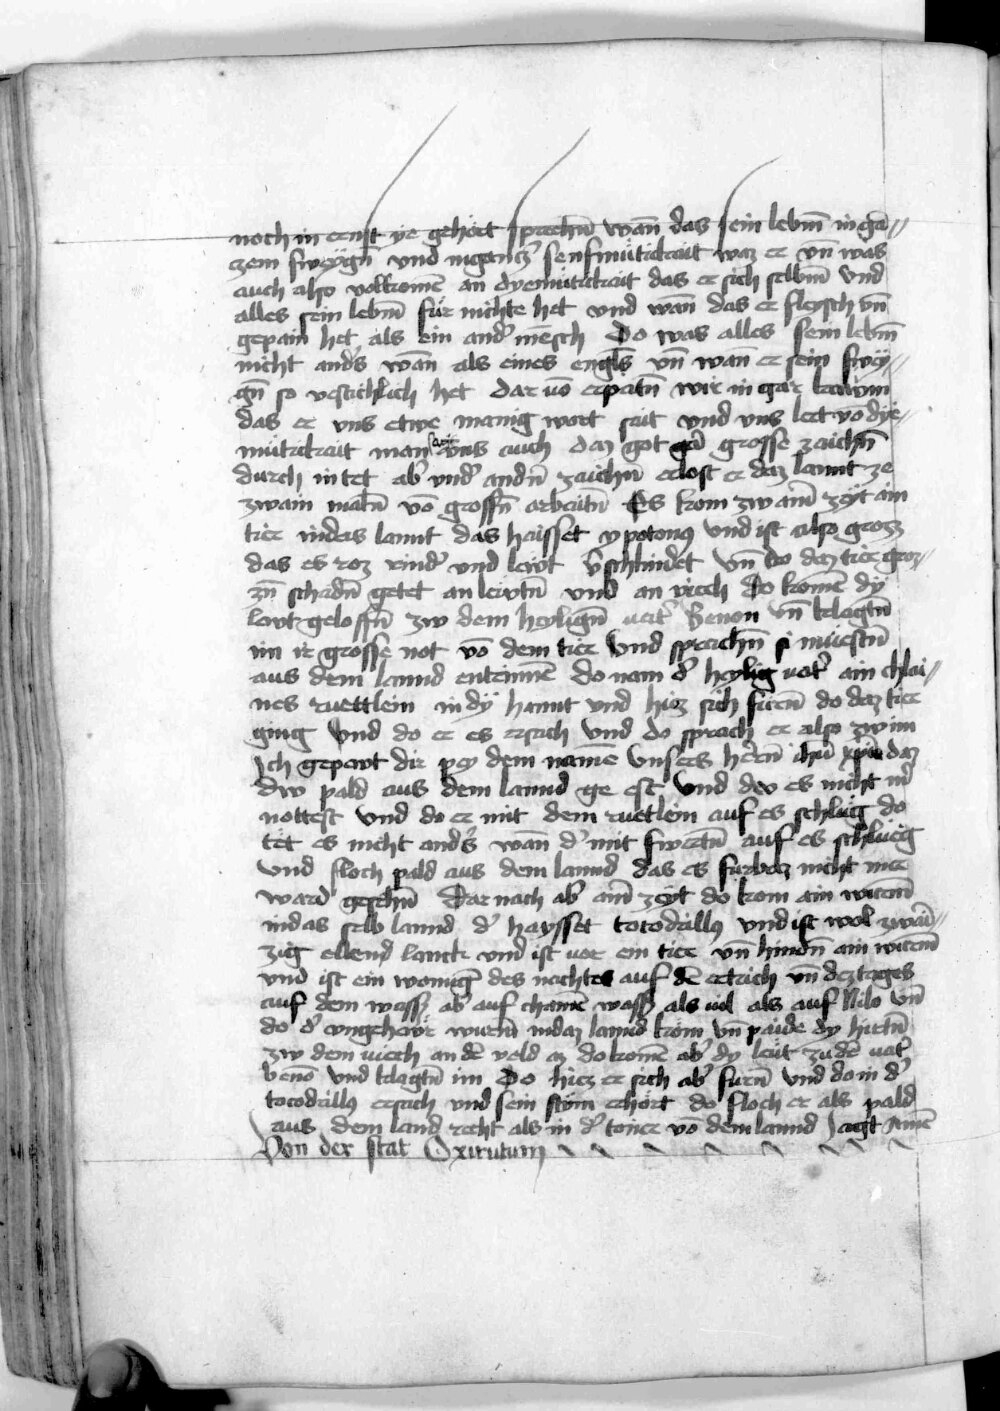 noch in ernst ye gehört sprechn̄ wan̄ das sein lebm̄ in gā⸗
czem sweygn̄ vnd in gancz̕ senfmütickait waz er vn̄ was
auch also volkomen an dyemütickait das er sich selbm̄ vnd
alles sein lebm̄ für nichte het vnd wan̄ das er fleysch vn̄
gepain het als ein and̕ mēsch Do was alles sein lebm̄
nicht and̕s wan̄ als eines engl̄s vn̄ wan̄ er sein swy⸗
gn̄ so vestichlich het dar vō erpatn̄ wir in gar kawm
das er vns etwe manig wort sait vnd vns lert vō dye⸗
mütickait man sait vns auch daz got gar grosse zaichn̄
durch in tet ab̕ vnd̕ andn̄ zaichn̄ erlost er daz lannt ze
zwain maln̄ vō grossn̄ arbaitn̄ Es kom zw ainē zeyt ain
tier in das lannt das haisset ypotonus vnd ist also grosz
das es roz rind̕ vnd lewt v̄schlindet Vn̄ do daz tier gros⸗
zn̄ schadn̄ getet an lewtn̄ vnd an viech Do komen dy
lewt geloffn̄ zw dem heylign̄ vat̕ Benon vn̄ klagtn̄
im ir grosse not vō dem tier Vnd sprachn̄ si müestn̄
aus dem lannd entrinnē do nam d̕ heylig vat̕ ain chlai⸗
nes ruettlein in dy hannt vnd hiez sich fürn̄ do daz tier
ging Vnd do er es ersach vnd do sprach er also zw im
Ich gepewt dir pey dem namē vnsers h̕ern ihū xpi̅ daz
dw pald aus dem lannd ge est Vnd dev es nicht m̄
nottest vnd do er mit dem ruetlein auf es schlug do
tet es nicht and̕s wan̄ d̕ mit swertn̄ auf es schlueg
vnd floch pald aus dem lannd das es furbaz nicht mer
ward gesehn̄ Dar nach ab̕ ainē zeyt do kom ain wurm̄
in das selb lannd d̕ haysset cocodrillus vnd ist wol zwain⸗
zig ellend lanck vnd ist vor ein tier vn̄ hindn̄ ain wurm̄
vnd ist ein wonūg des nachtes auf dē ertrich vn̄ dez tages
auf dem wass̕ ab̕ auf chainē wass̕ als vil als auf Nilo vn̄
do d̕ vngehewr wurm̄ in daz lannd kom vn̄ paide dy hirtn̄
zw dem viech an dē veld az do komē ab̕ dy lewt zu dē vat̕
benō vnd klagtn̄ im Do hiez er sich ab̕ furn̄ vnd do in d̕
cocodrillus ersach vnd sein stym erhört do floch er als pald
aus dem land recht als in d̕ toner vō dem lannd Jagt Amē
Von der stat Oxirutum